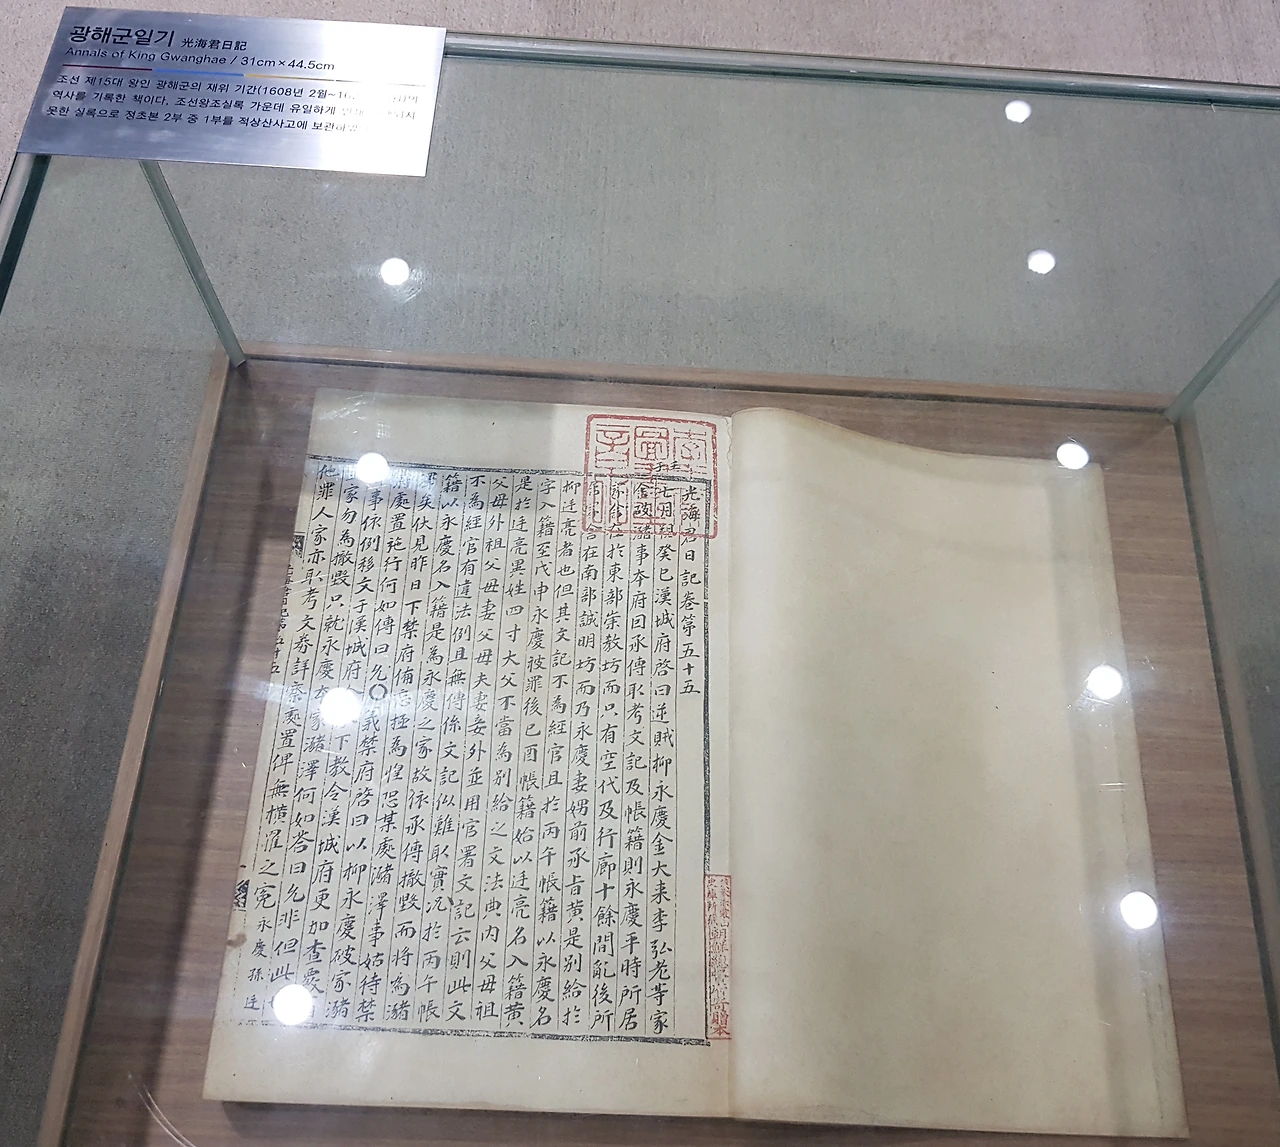 광해군일기 光海君日記
Annals of King Gwanghae / 31cm×44.5cm
조선 제15대 왕인 광해군의 재위 기간(1608년 2월~16
역사를 기록한 책이다. 조선왕조실록 가운데 유일하게
못한 실록으로 정초본 2부 중 1부를 적상산사고에 보관하였
光海君日記卷第五十五
七月朔癸巳漢城府啓曰逆賊柳永慶金大来李弘老等家
舍破瀦事本府回承傳取考文記及帳籍則永慶平時所居
家舍在於東部崇教坊而只有空代及行廊十餘間亂後所
在南部誠明坊而乃永慶妻娚前承旨黄是別給於
柳𢓡亮者也但其文記不為經官且於丙午帳籍以永慶名
字入籍至戊申永慶被罪後己酉帳籍始以𢓡亮名入籍黄
是於𢓡亮異姓四寸大父不當為別給之文法典内父母祖
父母外祖父母妻父母夫妻妾外並用官署文記云則此文
不為經官有違法例且無傳係文記似難取實况於丙午帳
籍以永慶名入籍是為永慶之家故依承傳撤毁而將為瀦
澤矣伏見昨日下禁府備忘極為惶恐某處瀦澤事姑待禁
府處置施行何如傳曰允○義禁府啓曰以柳永慶破家瀦
事依例移文于漢城府 下教令漢城府更加查覈
家勿為撤毁只就永慶 家瀦澤何如答曰允非但此
他罪人家亦取考文券詳察處置俾無横罹之寃永慶孫